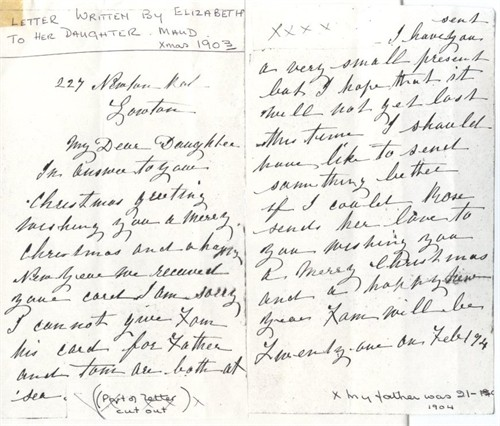 LETTER WRITTEN BY ELIZABETH
TO HER DAUGHTER. MAUD.
Xmas 1903
227 Newton Rd
Lowton
My Dear Daughter
In answer to your
Christmas greeting
wishing you a Merry
Christmas and a happy
New Year we received
your card I am sorry
I cannot give Tom
his card for Father
and Tom are both at
sea.
(Part of letter
cut out)
X X X X
sent
I have you
a very small present
but I hope that it
will not get lost
this time I should
have like to send
something better
if I could Rose
sends her love to
you wishing you
a Merry Christmas
and a happy New
year Tom will be
Twenty-one on Feb
x my father was 21 -
1904